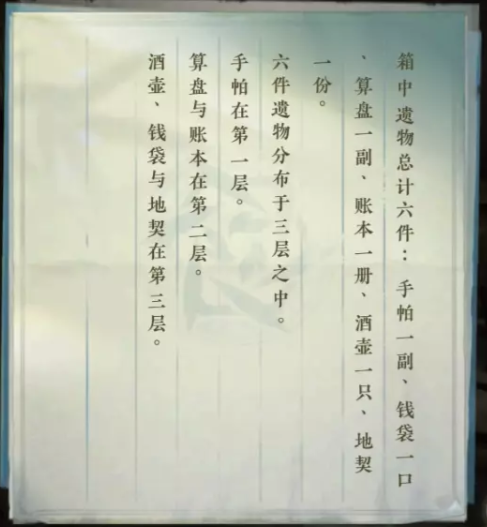 箱中遗物总计六件：手帕一副、钱袋一口
、算盘一副、账本一册、酒壶一只、地契
一份。
六件遗物分布于三层之中。
手帕在第一层。
算盘与账本在第二层。
酒壶、钱袋与地契在第三层。